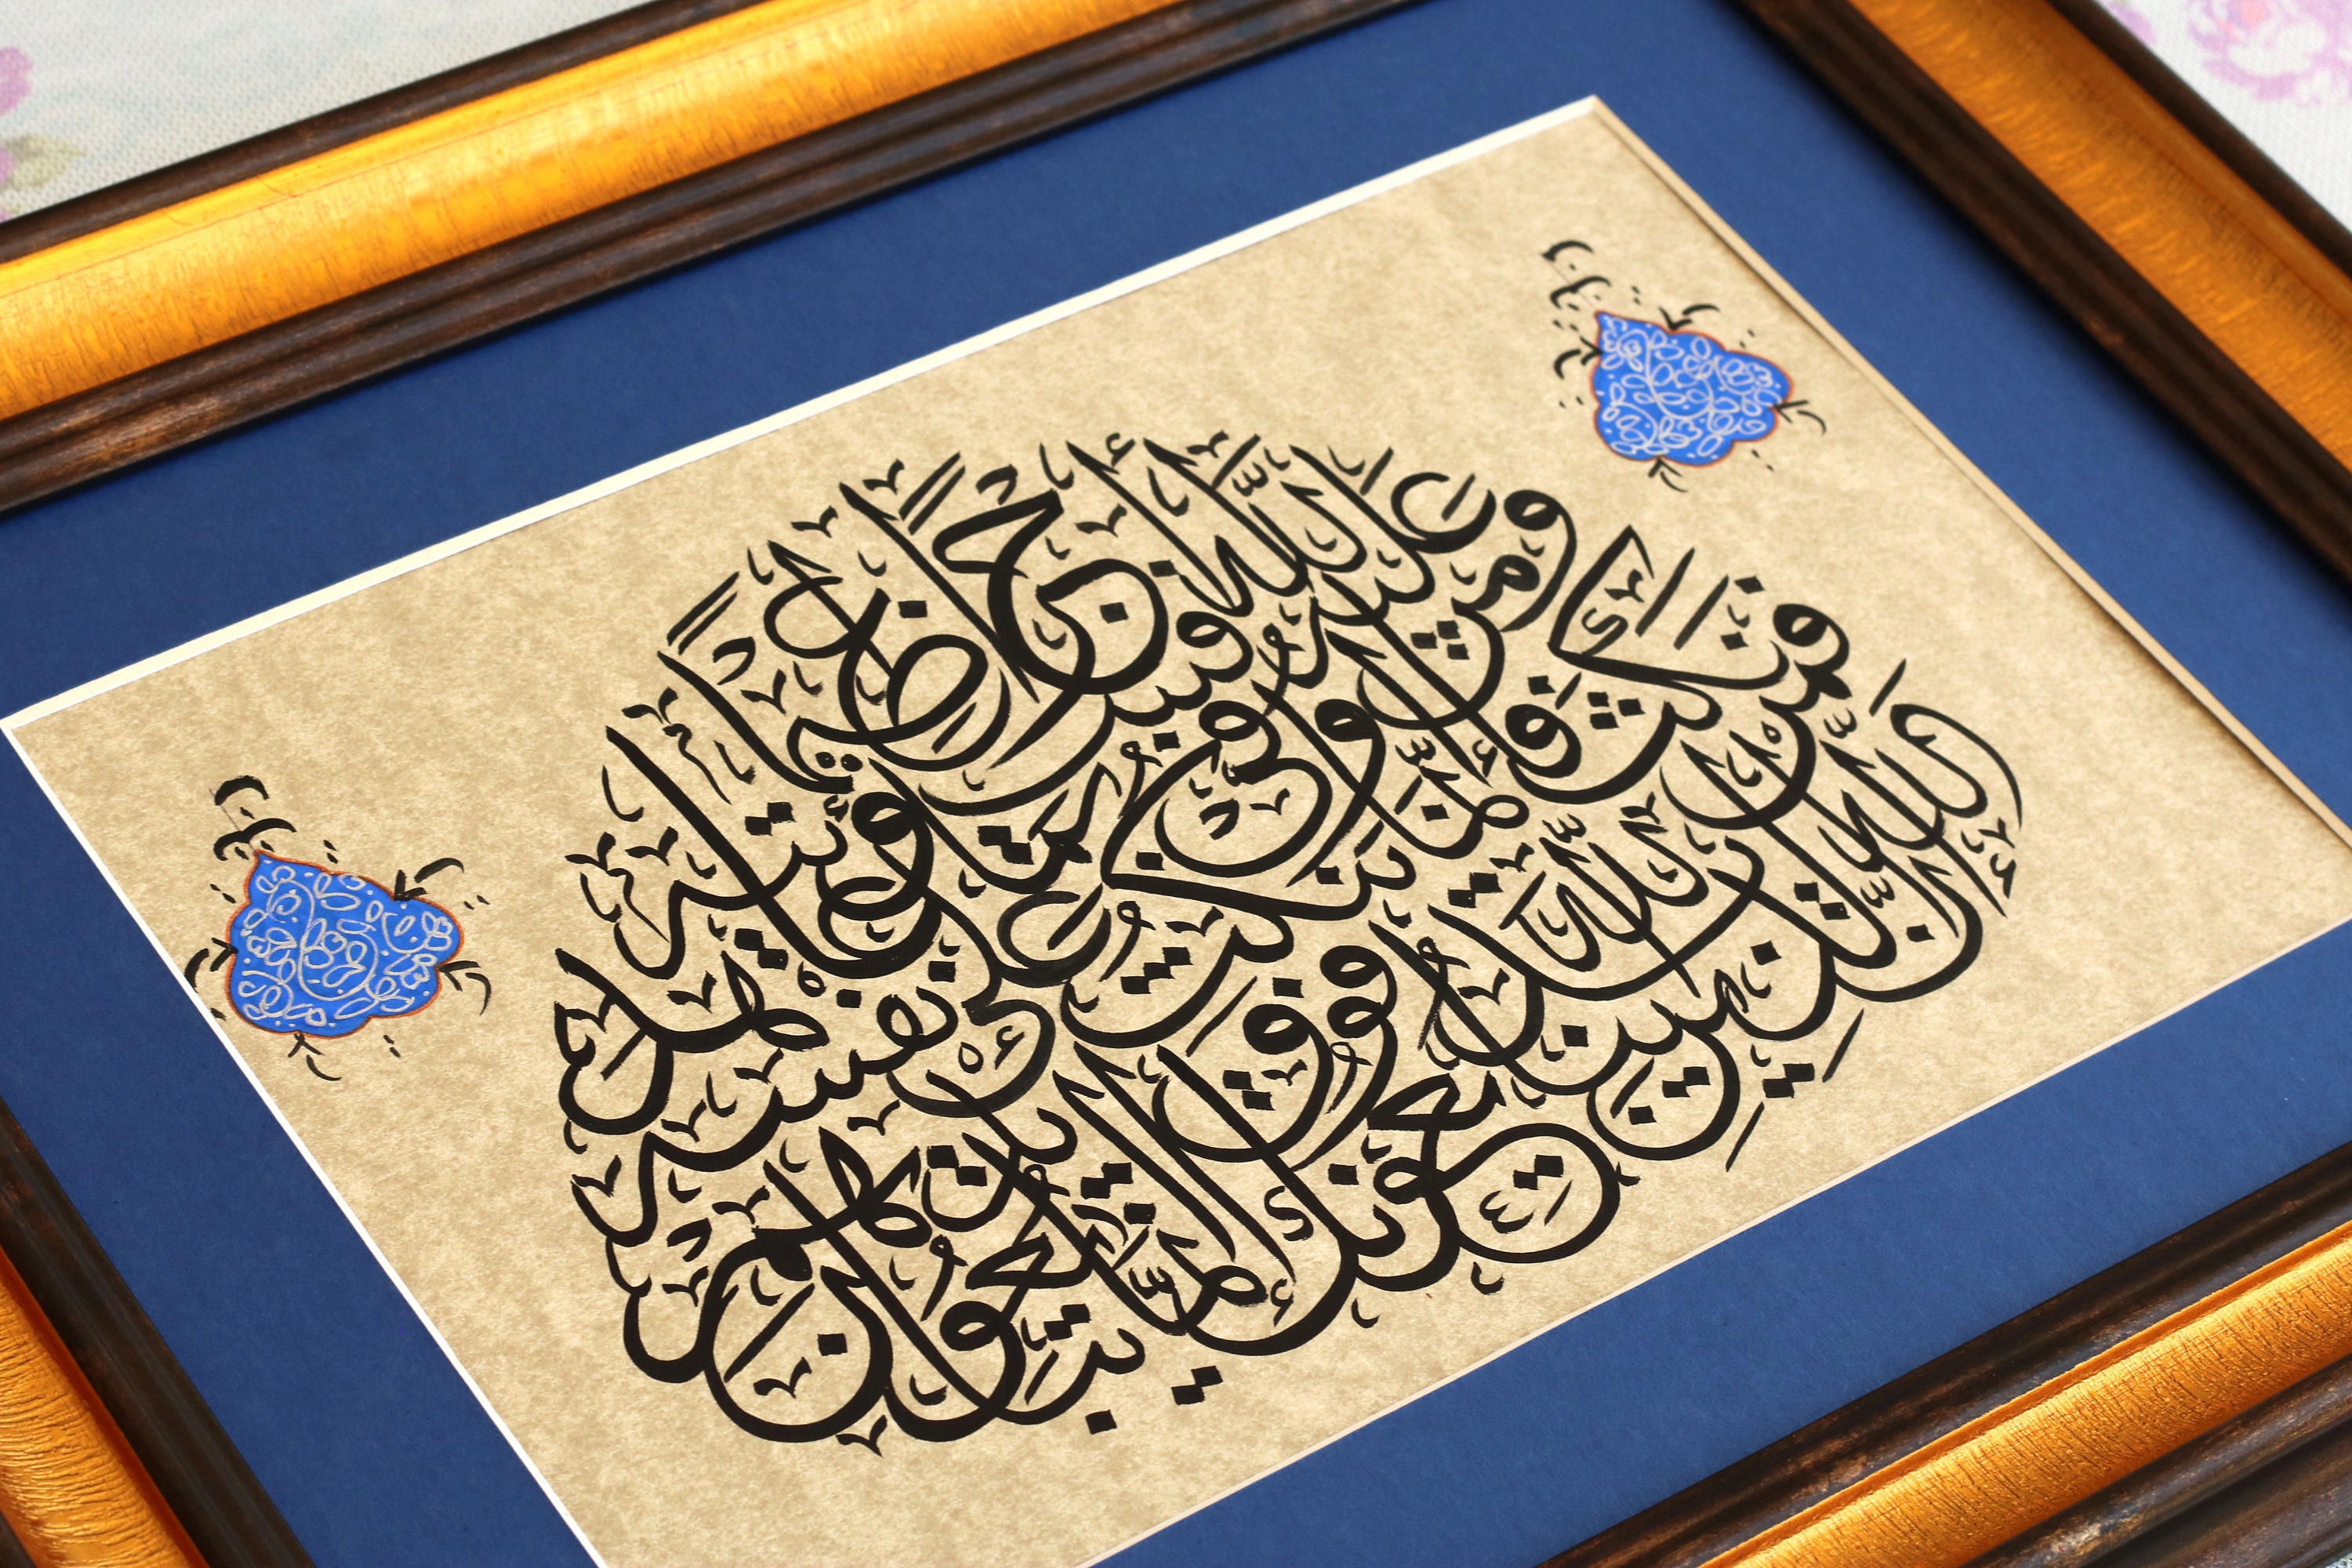 إِنَّ الَّذِينَ يُبَايِعُونَكَ إِنَّمَا يُبَايِعُونَ اللَّهَ يَدُ اللَّهِ فَوْقَ أَيْدِيهِمْ فَمَنْ نَكَثَ فَإِنَّمَا يَنْكُثُ عَلَىٰ نَفْسِهِ وَمَنْ أَوْفَىٰ بِمَا عَاهَدَ عَلَيْهُ اللَّهَ فَسَيُؤْتِيهِ أَجْرًا عَظِيمًا